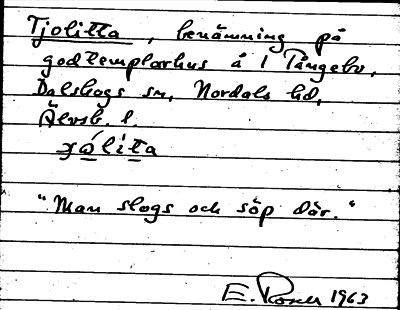 Tjolitta, benämning på
godtemplarhus å 1 Tångebo,
Dalskogs sn, Nordals hd,
Älvsb. l.
"Man slogs och söp där."
E. 1963